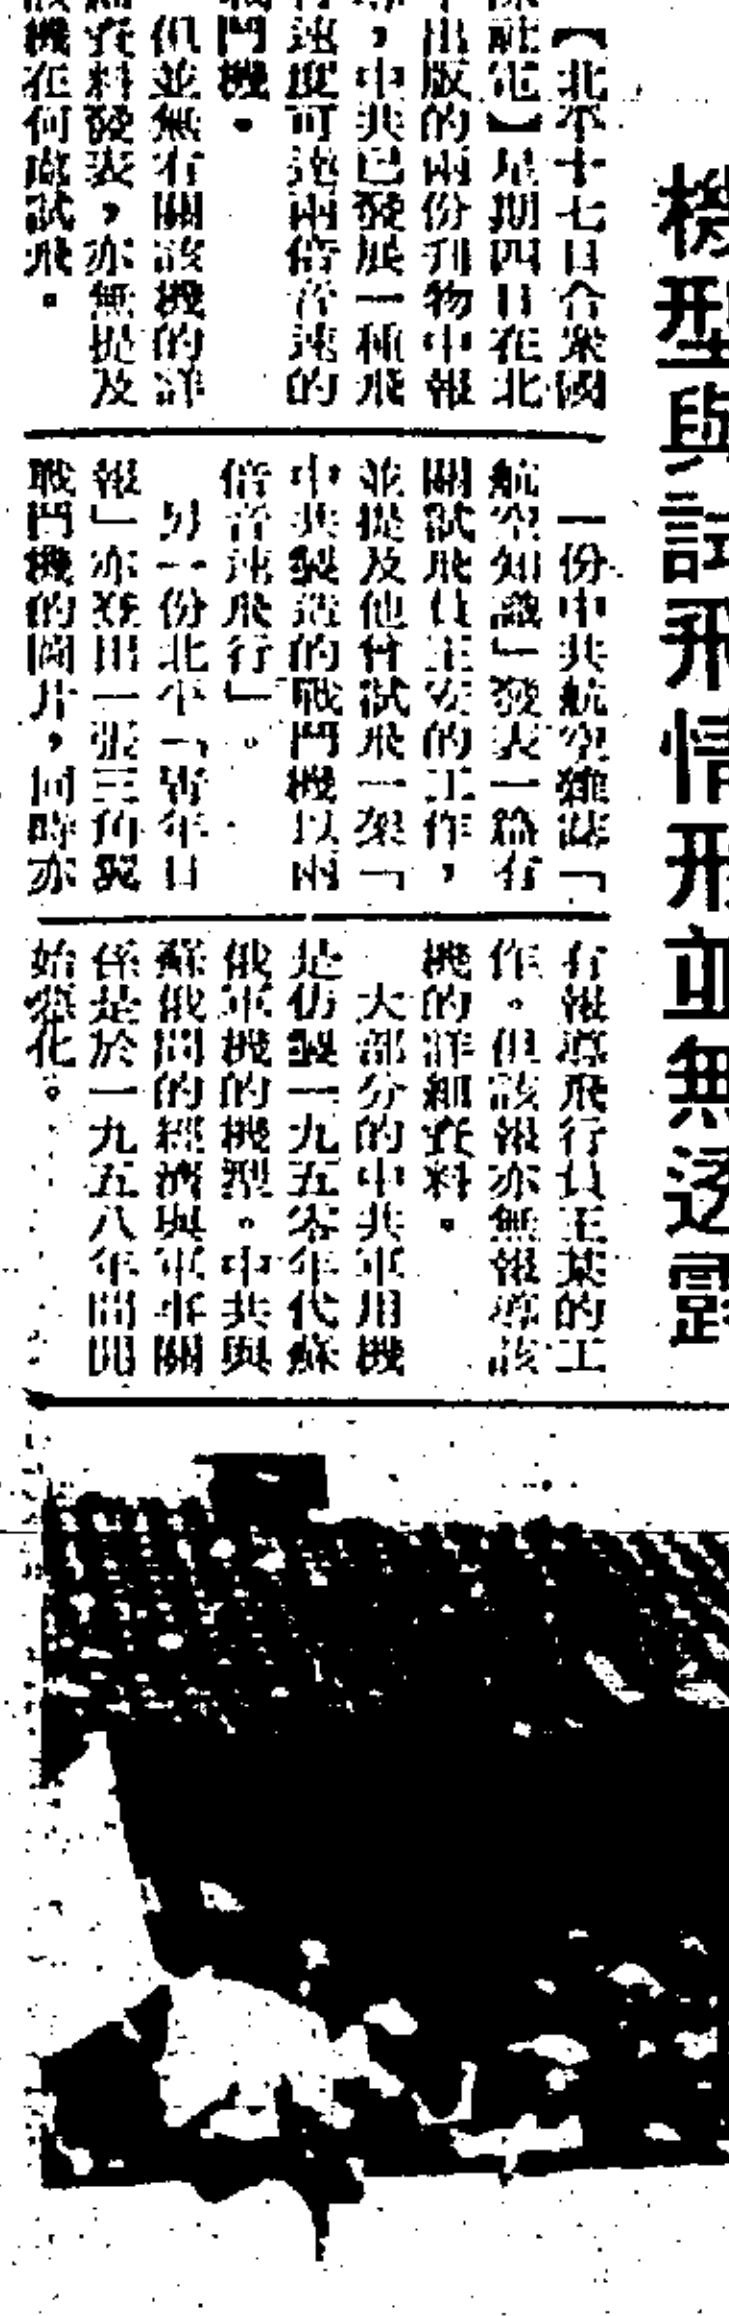 機型與試飛情形並無透露
【北平十七日合眾國
社電】星期四日在北
出版的兩份刊物中報
，中共已發展一種飛
速度可達兩倍音速的
鬥機。
但並無有關該機的詳
資料發表，亦無提及
機在何處試飛。
一份中共航空雜誌「
航空知識」發表一篇有
關試飛員王安的工作，
並提及他曾試飛一架「
中共製造的戰鬥機以兩
倍音速飛行」。
另一份北平「青年日
報」亦登出一張三角翼
戰鬥機的圖片，同時亦
有報導飛行員王某的工
作。但該報亦無報導該
機的詳細資料。
大部分的中共軍用機
是仿製一九五零年代蘇
俄軍機的機型。中共與
蘇俄間的經濟與軍事關
係是於一九五八年間開
始惡化。